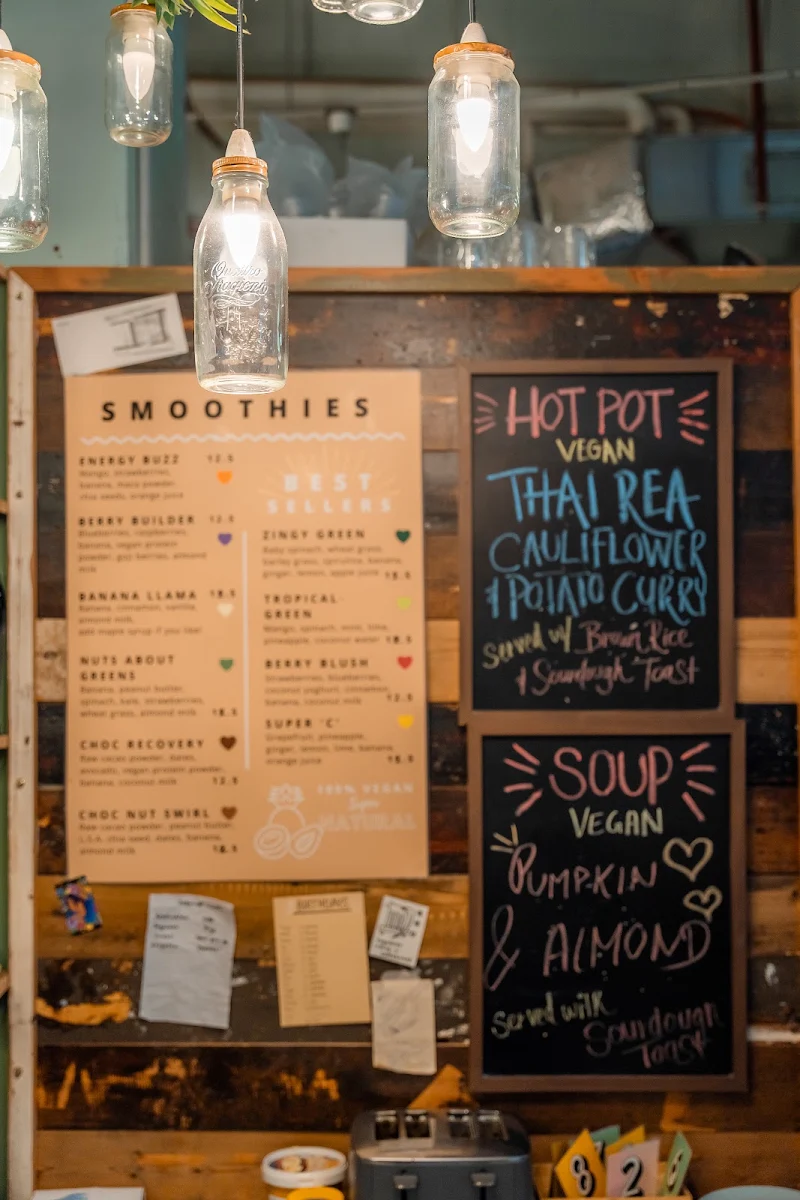 SMOOTHIES
ENERGY BUZZ 12.5
Mango, strawberries,
banana, maca powder,
chia seeds, orange juice
BERRY BUILDER 12.5
Blueberries, raspberries,
banana, vegan protein
powder, goji berries, almond
milk
BANANA LLAMA
Banana, cinnamon, vanilla,
almond milk,
add maple syrup if you like!
NUTS ABOUT
GREENS
Banana, peanut butter,
spinach, kale, strawberries,
wheat grass, almond milk
CHOC RECOVERY
Raw cacao powder, dates,
avocado, vegan protein powder,
banana, coconut milk 12.5
CHOC NUT SWIRL
Raw cacao powder, peanut butter,
L.S.A, chia seed, dates, banana,
almond milk
BEST
SELLERS
ZINGY GREEN
Baby spinach, wheat grass,
barley grass, spirulina, banana,
ginger, lemon, apple juice
TROPICAL
GREEN
Mango, spinach, mint, lime,
pineapple, coconut water
BERRY BLUSH
Strawberries, blueberries,
coconut yoghurt, cinnamon,
banana, coconut milk 12.5
SUPER 'C'
Grapefruit, pineapple,
ginger, lemon, lime, banana,
orange juice
100% VEGAN
Super
NATURAL
HOT POT
VEGAN
THAI REA
CAULIFLOWER
& POTATO CURRY
Served w/ Brown Rice
& Sourdough Toast
SOUP
VEGAN
PUMPKIN
& ALMOND
Served with
Sourdough
Toast
BIRTHDAYS
8 2